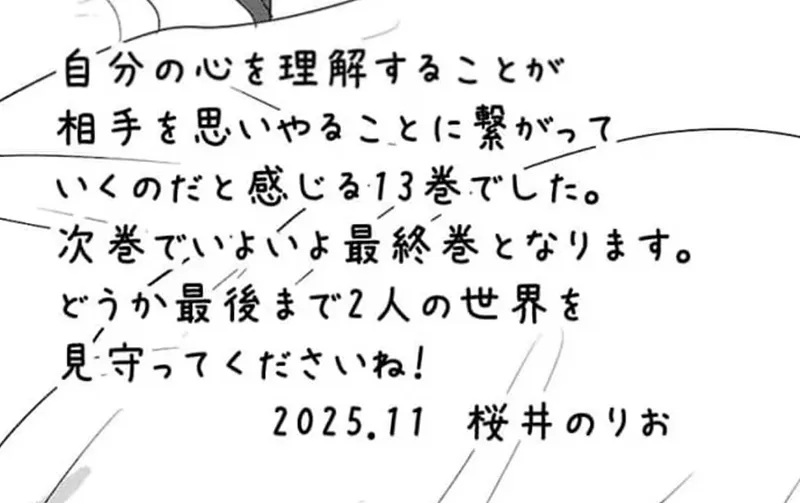 自分の心を理解することが
相手を思いやることに繋がって
いくのだと感じる13巻でした。
次巻でいよいよ最終巻となります。
どうか最後まで2人の世界を
見守ってくださいね!
2025.11 桜井のりお